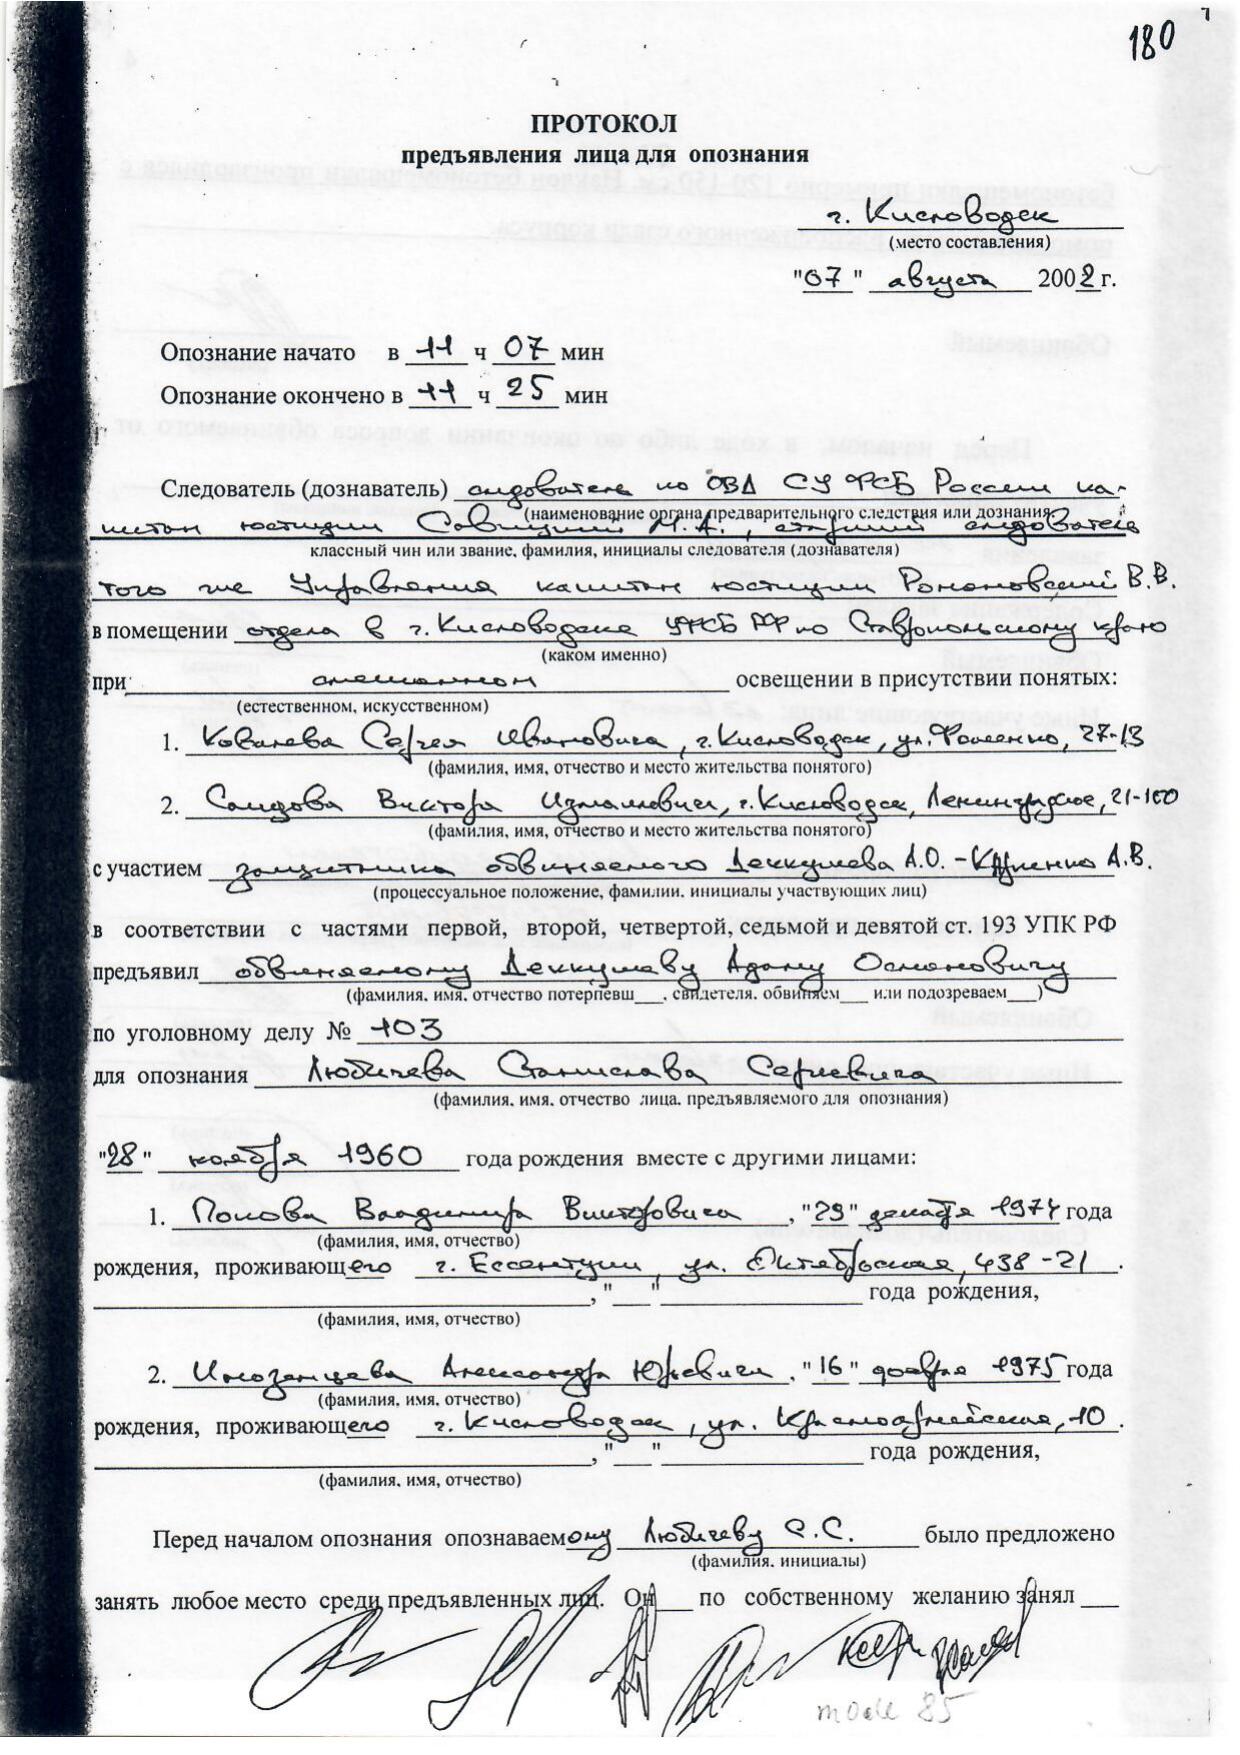 180
ПРОТОКОЛ
предъявления лица для опознания
г. Кисловодск
(место составления)
"07" августа 2002 г.
Опознание начато в 11 ч 07 мин
Опознание окончено в 11 ч 25 мин
Следователь (дознаватель) следователь по ОВД СУ ФСБ России ка-
(наименование органа предварительного следствия или дознания,
питан юстиции Савицкий М.А., старший следователь
классный чин или звание, фамилия, инициалы следователя (дознавателя)
того же Управления капитан юстиции Романовский В.В.
в помещении отдела в г. Кисловодске УФСБ РФ по Ставропольскому краю
(каком именно)
при смешанном освещении в присутствии понятых:
(естественном, искусственном)
1. Ковалева Сергея Ивановича, г. Кисловодск, ул. Фоменко, 27-13
(фамилия, имя, отчество и место жительства понятого)
2. Саидова Виктора Измаиловича, г. Кисловодск, Ленинградская, 21-100
(фамилия, имя, отчество и место жительства понятого)
с участием защитника обвиняемого Деккушева А.О. - А.В.
(процессуальное положение, фамилии, инициалы участвующих лиц)
в соответствии с частями первой, второй, четвертой, седьмой и девятой ст. 193 УПК РФ
предъявил обвиняемому Деккушеву Адаму Османовичу
(фамилия, имя, отчество потерпевш___, свидетеля, обвиняем___ или подозреваем___)
по уголовному делу № 103
для опознания Любичева Станислава Сергеевича
(фамилия, имя, отчество лица, предъявляемого для опознания)
"28" ноября 1960 года рождения вместе с другими лицами:
1. Попова Владимира Викторовича, "29" декабря 1974 года
(фамилия, имя, отчество)
рождения, проживающего г. Ессентуки, ул. Октябрьская, 438-21.
, "___" года рождения,
(фамилия, имя, отчество)
2. Иноземцева Александра Юрьевича, "16" февраля 1975 года
(фамилия, имя, отчество)
рождения, проживающего г. Кисловодск, ул. Красноармейская, 10.
, "___" года рождения,
(фамилия, имя, отчество)
Перед началом опознания опознаваемому Любичеву С.С. было предложено
(фамилия, инициалы)
занять любое место среди предъявленных лиц. Он___ по собственному желанию занял ___
85